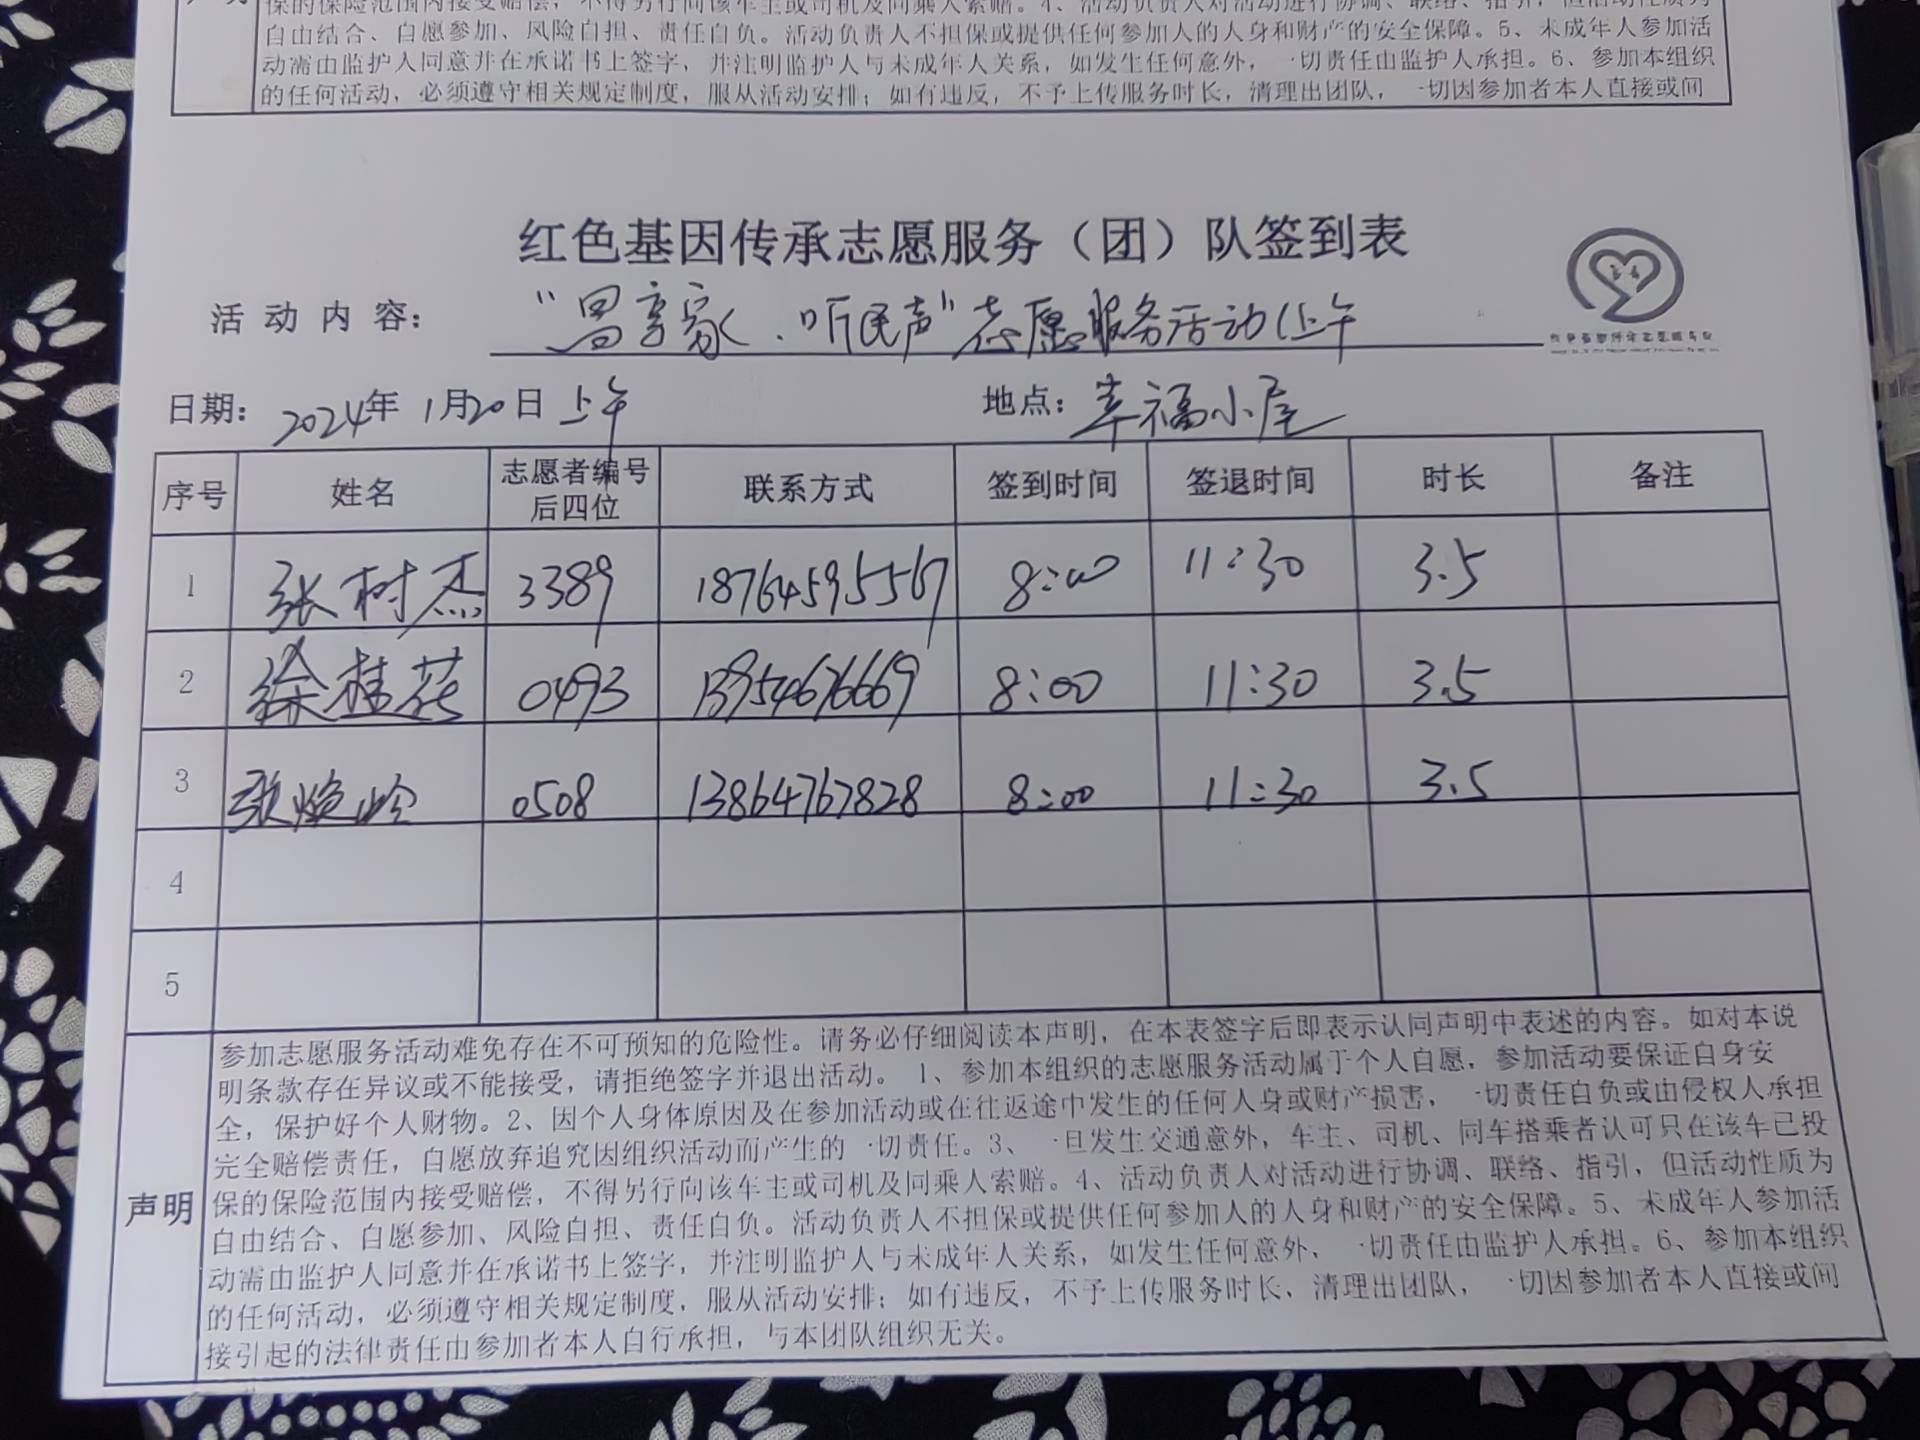 保的保险范围内接受赔偿，不得另行向该车主或司机及同乘人索赔。4、活动负责人对活动进行协调、联络、指引，但活动性质为
自由结合、自愿参加、风险自担、责任自负。活动负责人不担保或提供任何参加人的人身和财产的安全保障。5、未成年人参加活
动需由监护人同意并在承诺书上签字，并注明监护人与未成年人关系，如发生任何意外，一切责任由监护人承担。6、参加本组织
的任何活动，必须遵守相关规定制度，服从活动安排；如有违反，不予上传服务时长，清理出团队，一切因参加者本人直接或间
红色基因传承志愿服务（团）队签到表
活动内容： 享家、听民声”志愿服务活动(上午
日期：2024年1月20日上午 地点：幸福小屋
序号 姓名 志愿者编号后四位 联系方式 签到时间 签退时间 时长 备注
1 张树杰 3389 18764595567 8:00 11:30 3.5
2 徐桂花 0493 13954676669 8:00 11:30 3.5
3 张焕岭 0508 13864767828 8:00 11:30 3.5
4
5
声明
参加志愿服务活动难免存在不可预知的危险性。请务必仔细阅读本声明，在本表签字后即表示认同声明中表述的内容。如对本说
明条款存在异议或不能接受，请拒绝签字并退出活动。 1、参加本组织的志愿服务活动属于个人自愿，参加活动要保证自身安
全，保护好个人财物。2、因个人身体原因及在参加活动或在往返途中发生的任何人身或财产损害，一切责任自负或由侵权人承担
完全赔偿责任，自愿放弃追究因组织活动而产生的一切责任。3、一旦发生交通意外，车主、司机、同车搭乘者认可只在该车已投
保的保险范围内接受赔偿，不得另行向该车主或司机及同乘人索赔。4、活动负责人对活动进行协调、联络、指引，但活动性质为
自由结合、自愿参加、风险自担、责任自负。活动负责人不担保或提供任何参加人的人身和财产的安全保障。5、未成年人参加活
动需由监护人同意并在承诺书上签字，并注明监护人与未成年人关系，如发生任何意外，一切责任由监护人承担。6、参加本组织
的任何活动，必须遵守相关规定制度，服从活动安排；如有违反，不予上传服务时长，清理出团队，一切因参加者本人直接或间
接引起的法律责任由参加者本人自行承担，与本团队组织无关。